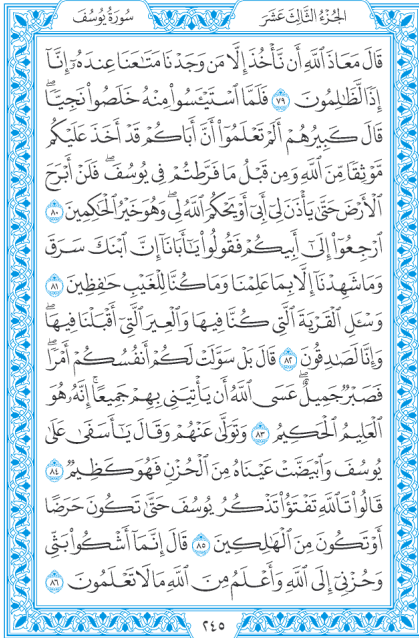 الجُزْءُ الثَّالِثَ عَشَرَ
سُورَةُ يُوسُفَ
قَالَ مَعَاذَ ٱللَّهِ أَن نَّأْخُذَ إِلَّا مَن وَجَدْنَا مَتَٰعَنَا عِندَهُۥٓ إِنَّآ
إِذًا لَّظَٰلِمُونَ ٧٩ فَلَمَّا ٱسْتَيْـَٔسُوا۟ مِنْهُ خَلَصُوا۟ نَجِيًّا ۖ
قَالَ كَبِيرُهُمْ أَلَمْ تَعْلَمُوٓا۟ أَنَّ أَبَاكُمْ قَدْ أَخَذَ عَلَيْكُم
مَّوْثِقًا مِّنَ ٱللَّهِ وَمِن قَبْلُ مَا فَرَّطتُمْ فِى يُوسُفَ ۖ فَلَنْ أَبْرَحَ
ٱلْأَرْضَ حَتَّىٰ يَأْذَنَ لِىٓ أَبِىٓ أَوْ يَحْكُمَ ٱللَّهُ لِى ۖ وَهُوَ خَيْرُ ٱلْحَٰكِمِينَ ٨٠
ٱرْجِعُوٓا۟ إِلَىٰٓ أَبِيكُمْ فَقُولُوا۟ يَٰٓأَبَانَآ إِنَّ ٱبْنَكَ سَرَقَ
وَمَا شَهِدْنَآ إِلَّا بِمَا عَلِمْنَا وَمَا كُنَّا لِلْغَيْبِ حَٰفِظِينَ ٨١
وَسْـَٔلِ ٱلْقَرْيَةَ ٱلَّتِى كُنَّا فِيهَا وَٱلْعِيرَ ٱلَّتِىٓ أَقْبَلْنَا فِيهَا ۖ
وَإِنَّا لَصَٰدِقُونَ ٨٢ قَالَ بَلْ سَوَّلَتْ لَكُمْ أَنفُسُكُمْ أَمْرًا ۖ
فَصَبْرٌ جَمِيلٌ ۖ عَسَى ٱللَّهُ أَن يَأْتِيَنِى بِهِمْ جَمِيعًا ۚ إِنَّهُۥ هُوَ
ٱلْعَلِيمُ ٱلْحَكِيمُ ٨٣ وَتَوَلَّىٰ عَنْهُمْ وَقَالَ يَٰٓأَسَفَىٰ عَلَىٰ
يُوسُفَ وَٱبْيَضَّتْ عَيْنَاهُ مِنَ ٱلْحُزْنِ فَهُوَ كَظِيمٌ ٨٤
قَالُوا۟ تَٱللَّهِ تَفْتَؤُا۟ تَذْكُرُ يُوسُفَ حَتَّىٰ تَكُونَ حَرَضًا
أَوْ تَكُونَ مِنَ ٱلْهَٰلِكِينَ ٨٥ قَالَ إِنَّمَآ أَشْكُوا۟ بَثِّى
وَحُزْنِىٓ إِلَى ٱللَّهِ وَأَعْلَمُ مِنَ ٱللَّهِ مَا لَا تَعْلَمُونَ ٨٦
٢٤٥